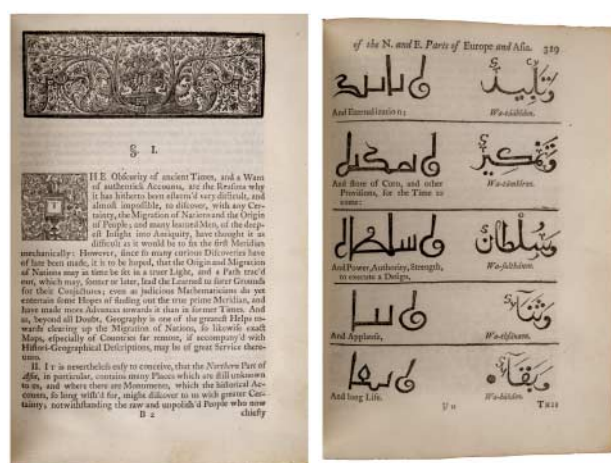 §. I.
THE Obscurity of ancient Times, and a Want
of authentick Accounts, are the Reasons why
it has hitherto been esteem'd very difficult, and
almost impossible, to discover, with any Cer-
tainty, the Migration of Nations and the Origin
of People; and many learned Men, of the deep-
est Insight into Antiquity, have thought it as
difficult as it would be to fix the first Meridian
mechanically: However, since so many curious Discoveries have
of late been made, it is to be hoped, that the Origin and Migration
of Nations may in time be set in a truer Light, and a Path trac'd
out, which may, sooner or later, lead the Learned to surer Grounds
for their Conjectures; even as judicious Mathematicians do yet
entertain some Hopes of finding out the true prime Meridian, and
have made more Advances towards it than in former Times. And
as, beyond all Doubt, Geography is one of the greatest Helps to-
wards clearing up the Migration of Nations, so likewise exact
Maps, especially of Countries far remote, if accompany'd with
Histori-Geographical Descriptions, may be of great Service there-
unto.
II. IT is nevertheless easy to conceive, that the Northern Part of
Asia, in particular, contains many Places which are still unknown
to us, and where there are Monuments, which the historical Ac-
counts, so long wish'd for, might discover to us with greater Cer-
tainty; notwithstanding the raw and unpolish'd People who now
B 2 chiefly
of the N. and E. Parts of Europe and Asia. 319
وتأبيد
And Eternalization;
وتمكين
And store of Corn, and other
Provisions, for the Time to
come:
وسلطان
And Power, Authority, Strength,
to execute a Design,
وثناء
And Applause,
وبقاء
And long Life.